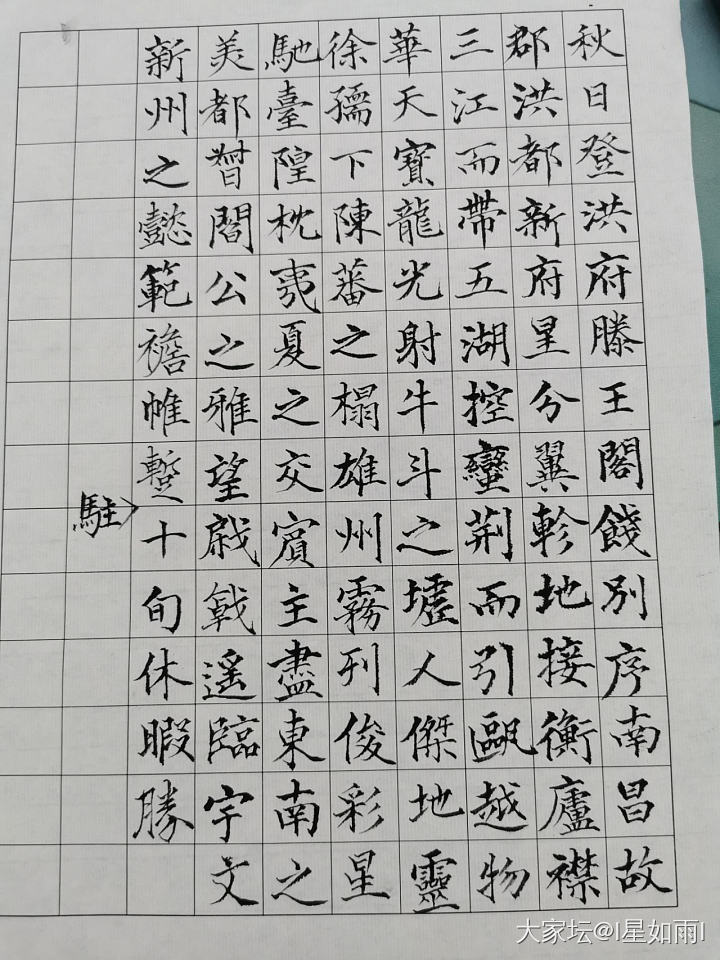 秋日登洪府滕王閣餞別序南昌故
郡洪都新府星分翼軫地接衡廬襟
三江而帶五湖控蠻荆而引甌越物
華天寶龍光射牛斗之墟人傑地靈
徐孺下陳蕃之榻雄州霧列俊彩星
馳臺隍枕夷夏之交賓主盡東南之
美都督閻公之雅望棨戟遥臨宇文
新州之懿範襜帷蹔十旬休暇勝
駐
大家坛@I星如雨I